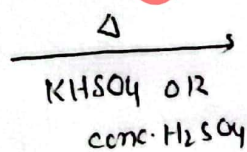 Δ
KHSO4 OR
conc. H2SO4